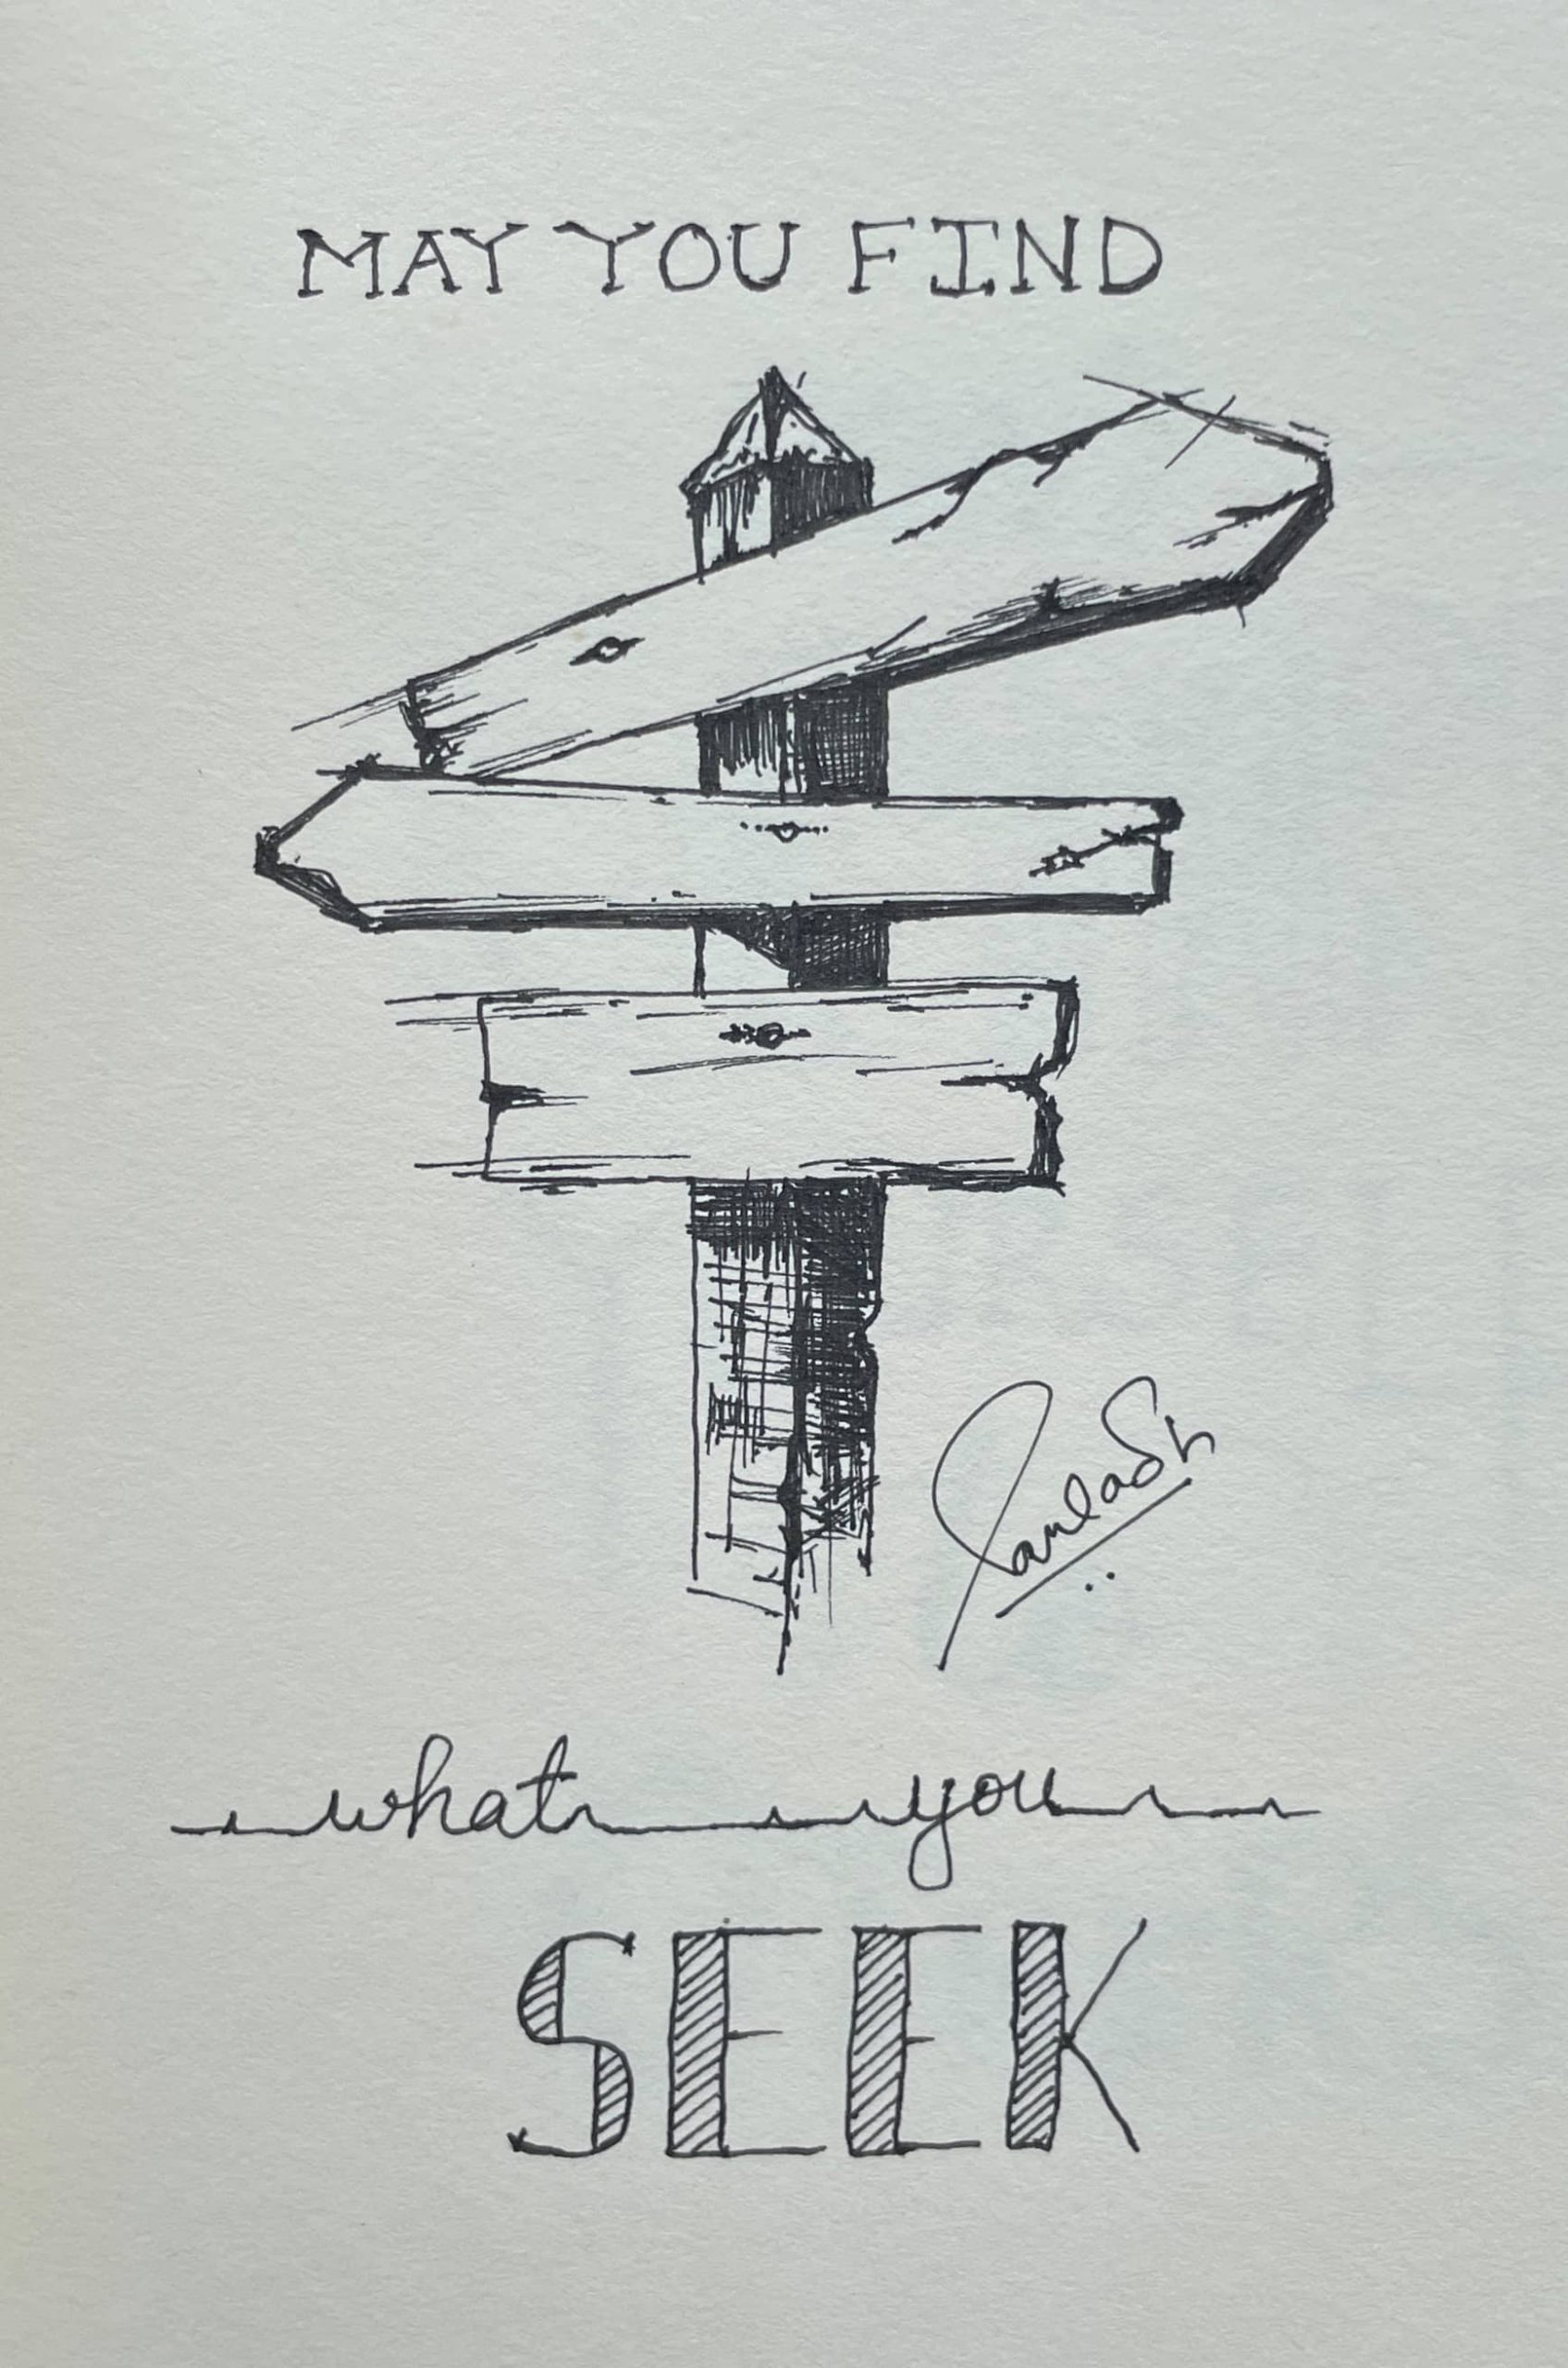 MAY YOU FIND
what you
SEEK